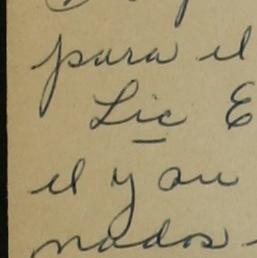 para el
Lic E
el y au
nados